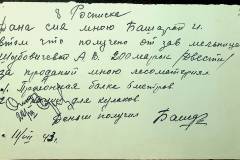 Расписка
Дана сия мною Башарат И.
втом что получено от зав мельницы
Шубовичева А В. 200 марок (двести)
за проданий мною лесоматериал
балка 6 метров
для кулаков
Деньги получил Башар
43 г.